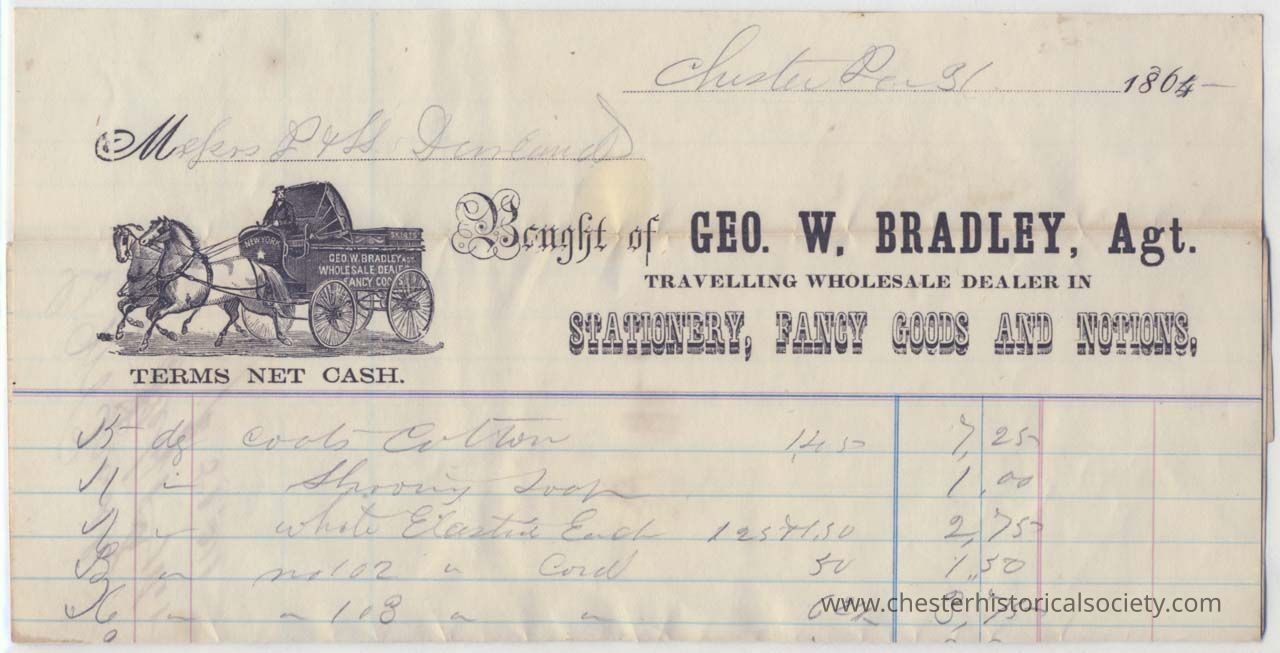 Chester Dec 31 1864
Messrs
NEW YORK
GEO. W. BRADLEY AGT.
WHOLESALE DEALER
FANCY GOODS
Bought of GEO. W. BRADLEY, Agt.
TRAVELLING WHOLESALE DEALER IN
STATIONERY, FANCY GOODS AND NOTIONS,
TERMS NET CASH.
5 dz Coats Cotton 1,45 7,25
1 " Shaving Soap 1,00
" white Elastic 125 1,50 2,75
3 " no 102 " Cord 50 1,50
6 " " 103 " " 62½ 3,75
www.chesterhistoricalsociety.com